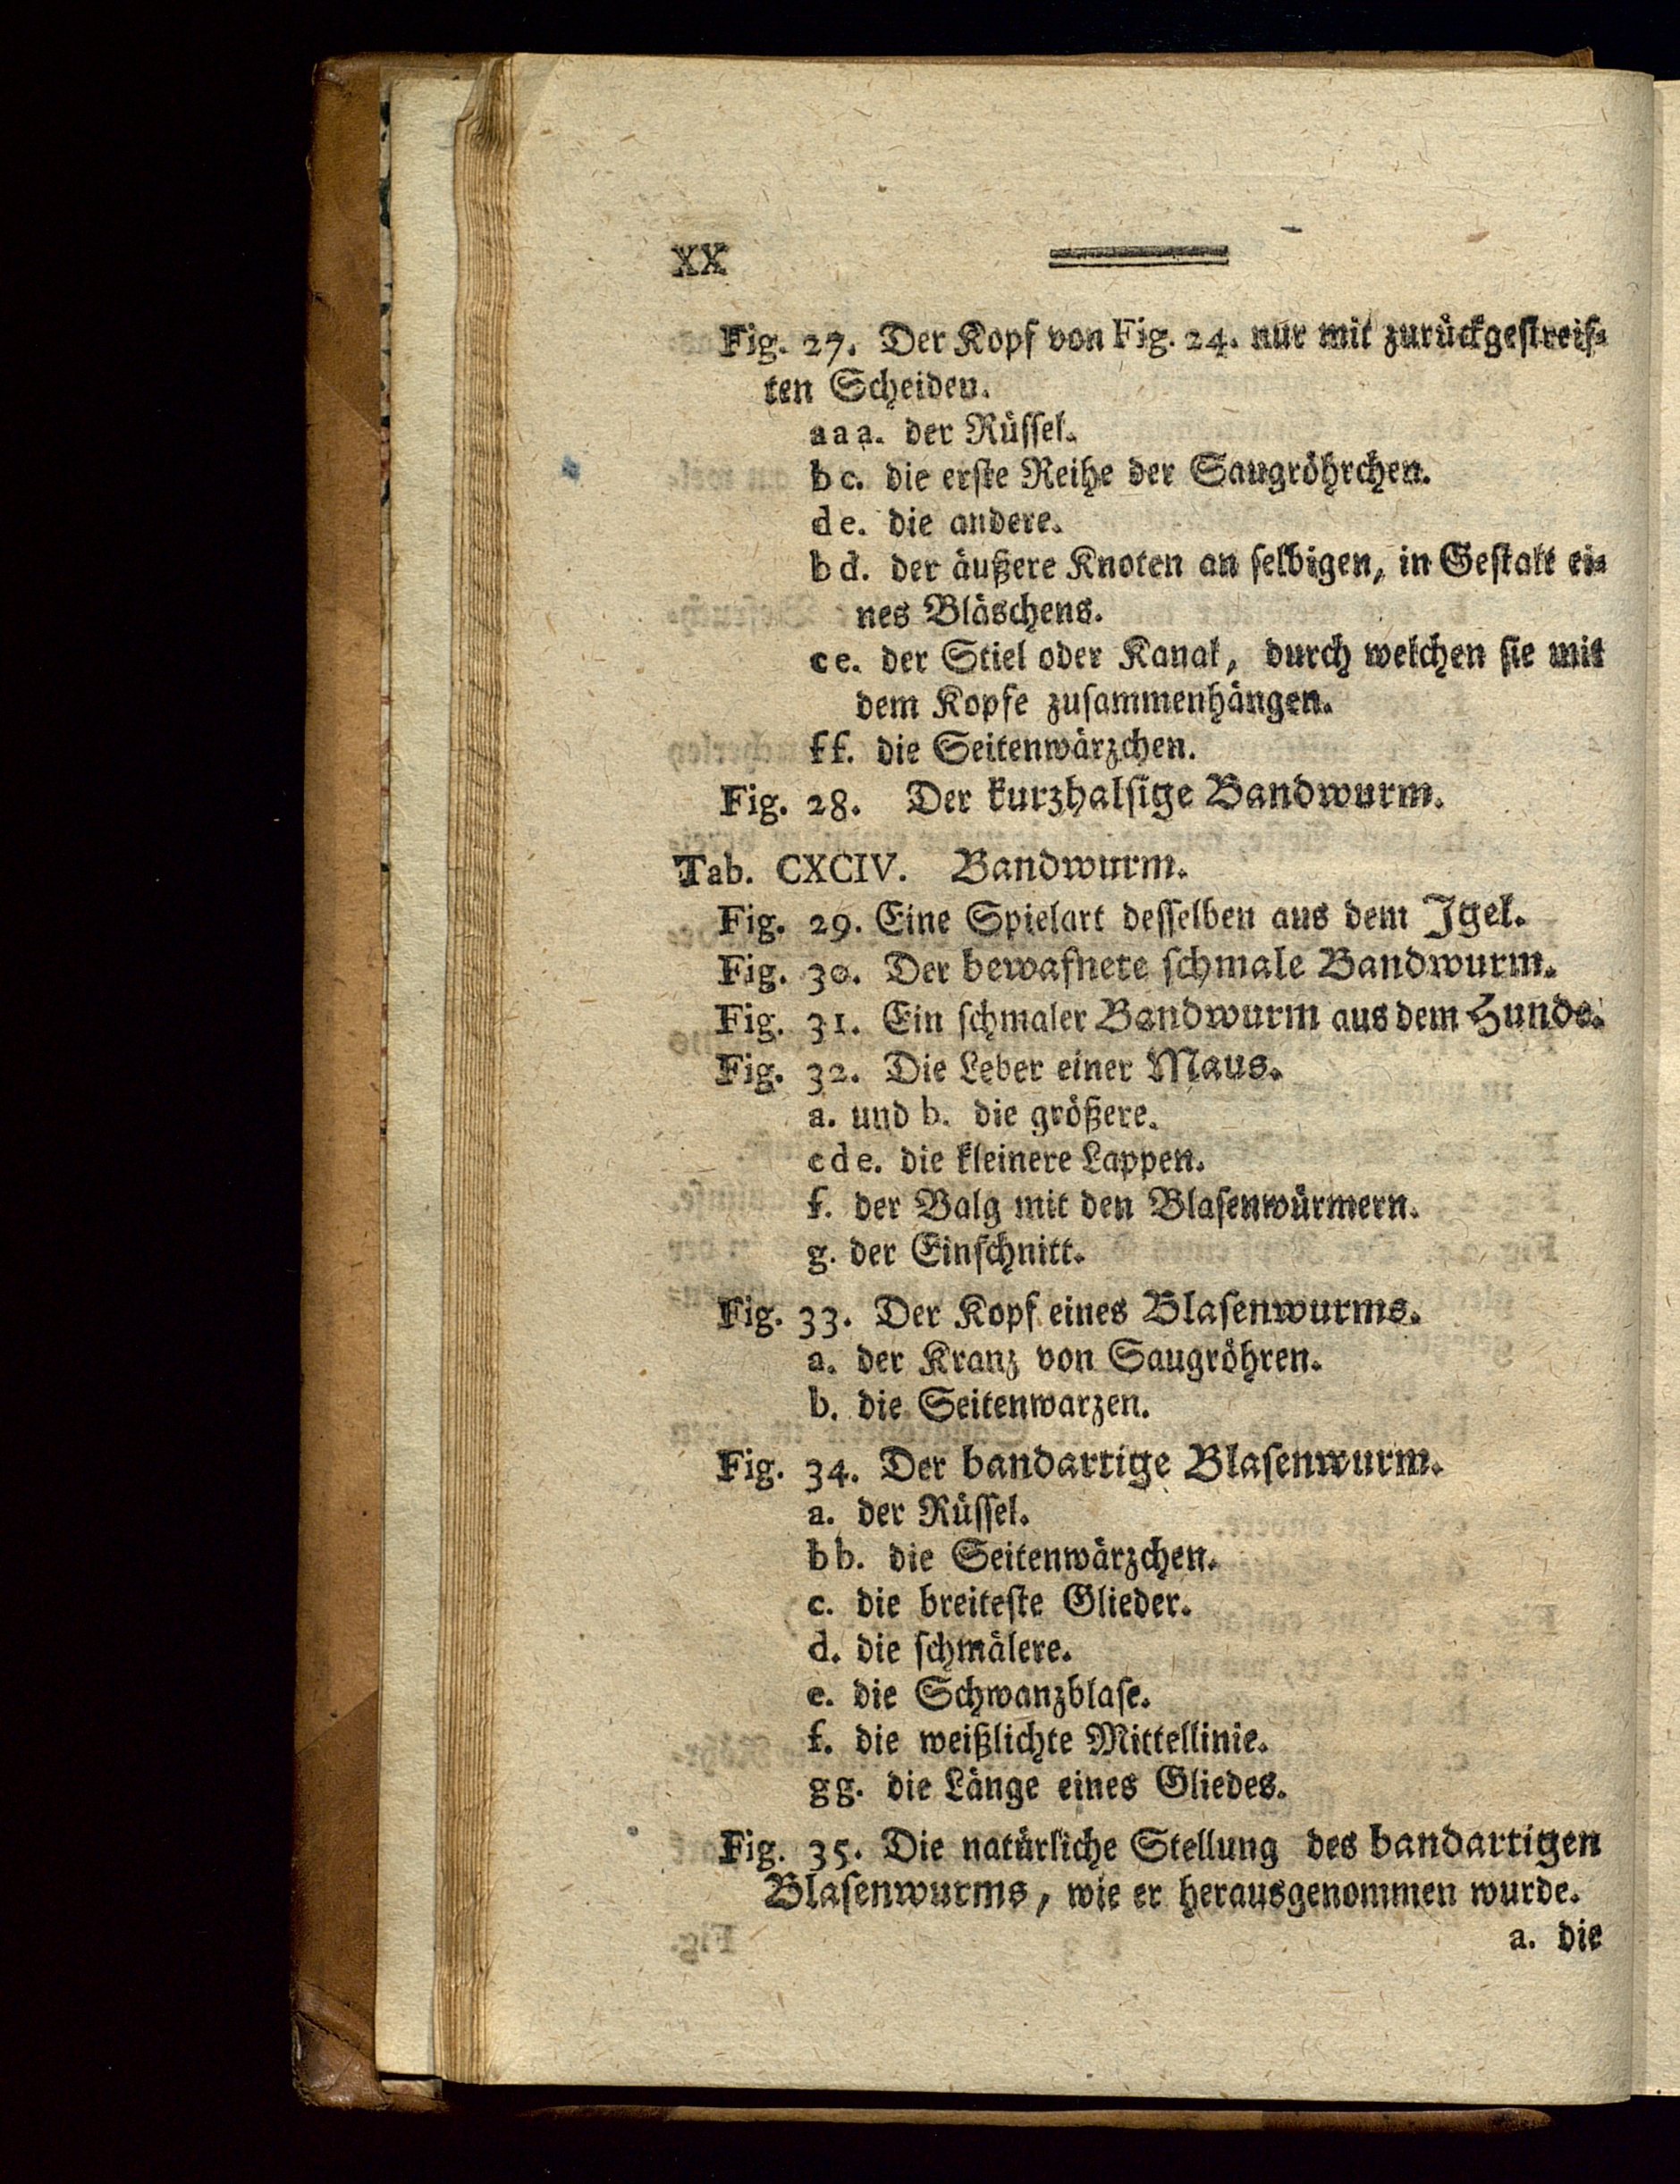 XX
Fig. 27. Der Kopf von Fig. 24. nur mit zurückgestreif-
ten Scheiden.
aaa. der Rüssel.
bc. die erste Reihe der Saugröhrchen.
de. die andere.
bd. der äußere Knoten an selbigen, in Gestalt ei-
nes Bläschens.
ce. der Stiel oder Kanal, durch welchen sie mit
dem Kopfe zusammenhängen.
ff. die Seitenwärzchen.
Fig. 28. Der kurzhalsige Bandwurm.
Tab. CXCIV. Bandwurm.
Fig. 29. Eine Spielart desselben aus dem Igel.
Fig. 30. Der bewafnete schmale Bandwurm.
Fig. 31. Ein schmaler Bandwurm aus dem Hunde.
Fig. 32. Die Leber einer Maus.
a. und b. die größere.
cde. die kleinere Lappen.
f. der Balg mit den Blasenwürmern.
g. der Einschnitt.
Fig. 33. Der Kopf eines Blasenwurms.
a. der Kranz von Saugröhren.
b. die Seitenwarzen.
Fig. 34. Der bandartige Blasenwurm.
a. der Rüssel.
bb. die Seitenwärzchen.
c. die breiteste Glieder.
d. die schmälere.
e. die Schwanzblase.
f. die weißlichte Mittellinie.
gg. die Länge eines Gliedes.
Fig. 35. Die natürliche Stellung des bandartigen
Blasenwurms, wie er herausgenommen wurde.
a. die